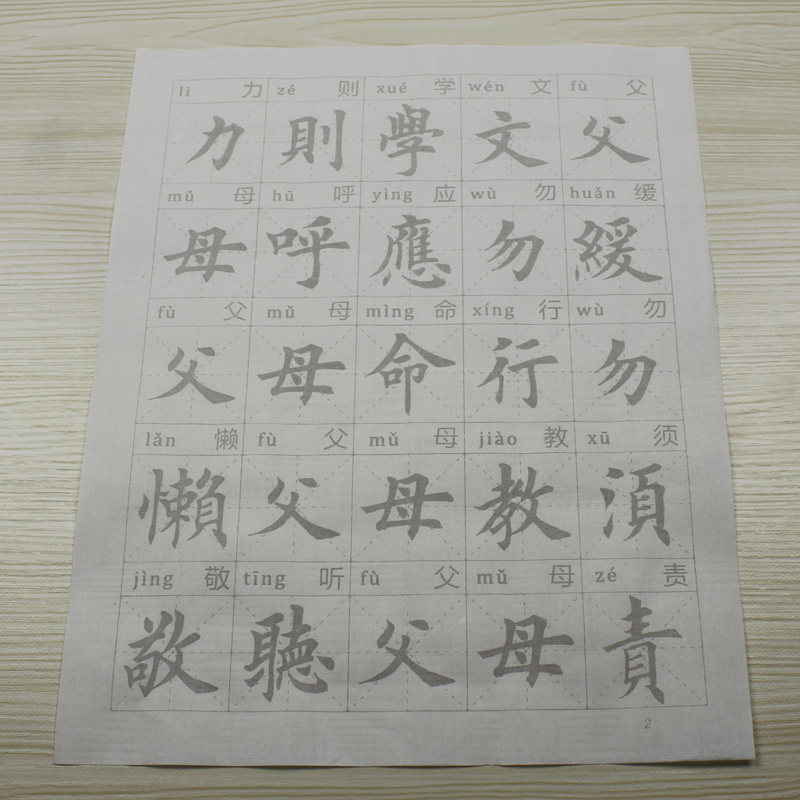 lì 力 zé 则 xué 学 wén 文 fù 父
力 則 學 文 父
mǔ 母 hū 呼 yìng 应 wù 勿 huǎn 缓
母 呼 應 勿 緩
fù 父 mǔ 母 mìng 命 xíng 行 wù 勿
父 母 命 行 勿
lǎn 懒 fù 父 mǔ 母 jiào 教 xū 须
懶 父 母 教 湏
jìng 敬 tīng 听 fù 父 mǔ 母 zé 责
敬 聽 父 母 責
2